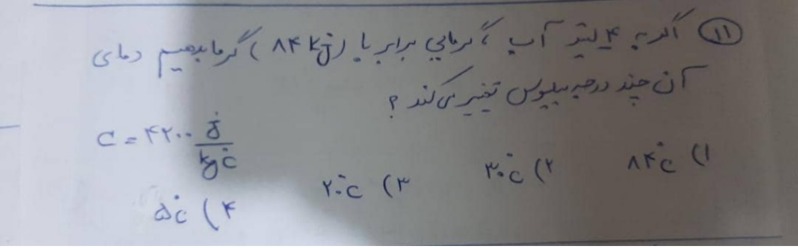 ۱۱) اگر به ۴ لیتر آب ، گرمایی برابر با (۸۴ kj) گرما بدهیم دمای
آن چند درجه سلسیوس تغییر می‌کند ؟
c = ۴۲۰۰ j/kg°c
۱) ۸۴°c ۲) ۳۰°c ۳) ۲۰°c
۴) ۵°c